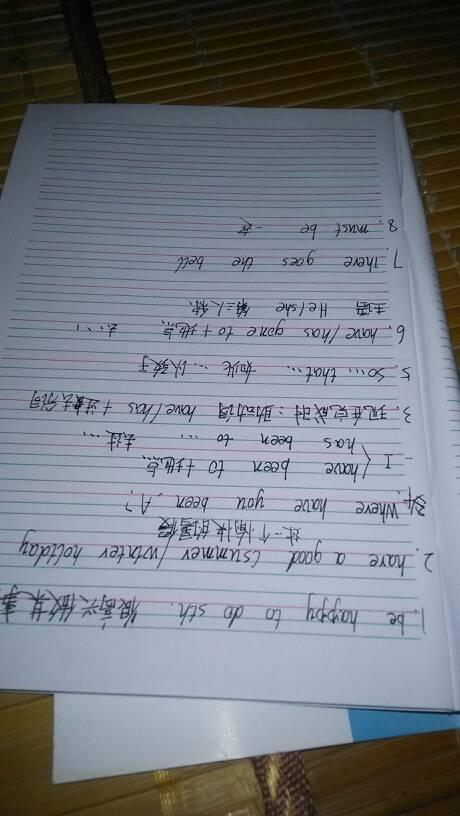 1. be happy to do sth. 很高兴做某事
2. have a good (summer / winter holiday
过一个愉快的暑假
4. Where have you been, A?
- I have been to + 地点
has been to ... 去过 ...
3. 现在完成时: 助动词 have / has + 过去分词
5. so ... that ... 如此 ... 以致于
6. have / has gone to + 地点 去 ...
主语 He / she 第三人称
7. There goes the bell
8. must be 一定